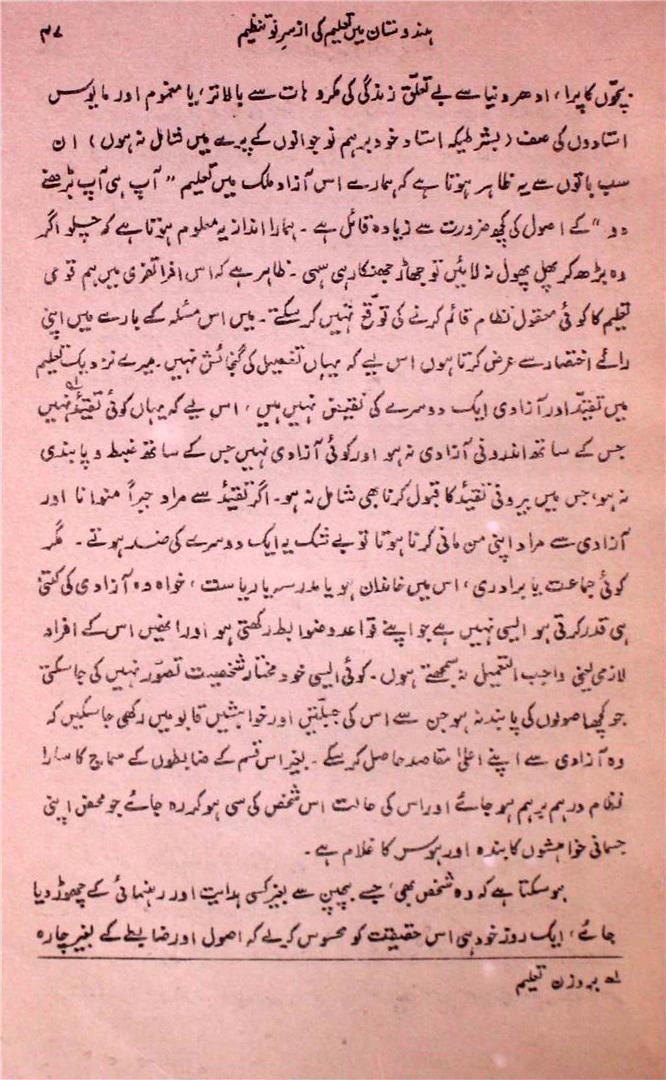 ہندوستان میں تعلیم کی از سرِ نو تنظیم ۳۷
بچّوں کا پرا، ادھر دنیا سے بے تعلق زندگی کی مکروہات سے بالاتر، یا مغموم اور مایوس
استادوں کی صف (بشرطیکہ استاد خود برہم نوجوانوں کے پرے میں شامل نہ ہوں) ان
سب باتوں سے یہ ظاہر ہوتا ہے کہ ہمارے اس آزاد ملک میں تعلیم ”آپ ہی آپ بڑھنے
دو“ کے اصول کی کچھ ضرورت سے زیادہ قائل ہے۔ ہمارا انداز یہ معلوم ہوتا ہے کہ چلو اگر
وہ بڑھ کر پھل پھول نہ لائیں تو جھاڑ جھنکار ہی سہی۔ ظاہر ہے کہ اس افراتفری میں ہم قومی
تعلیم کا کوئی معقول نظام قائم کرنے کی توقع نہیں کرسکتے۔ میں اس مسئلہ کے بارے میں اپنی
رائے اختصار سے عرض کرتا ہوں اس لیے کہ یہاں تفصیل کی گنجائش نہیں۔ میرے نزدیک تعلیم
میں تقیّد اور آزادی ایک دوسرے کی نقیض نہیں ہیں، اس لیے کہ یہاں کوئی تقیُّد لہ نہیں
جس کے ساتھ اندرونی آزادی نہ ہو اور کوئی آزادی نہیں جس کے ساتھ ضبط و پابندی
نہ ہو، جس میں بیرونی تقیّد کا قبول کرنا بھی شامل نہ ہو۔ اگر تقیّد سے مراد جبراً منوانا اور
آزادی سے مراد اپنی من مانی کرنا ہوتا تو بے شک یہ ایک دوسرے کی ضد ہوتے۔ مگر
کوئی جماعت یا برادری، اس میں خاندان ہو یا مدرسہ یا ریاست، خواہ وہ آزادی کی کتنی
ہی قدر کرتی ہو ایسی نہیں ہے جو اپنے قواعد و ضوابط رکھتی ہو اور انھیں اس کے افراد
لازمی یعنی واجب التعمیل نہ سمجھتے ہوں۔ کوئی ایسی خود مختار شخصیت تصوّر نہیں کی جاسکتی
جو کچھ اصولوں کی پابند نہ ہو جن سے اس کی جبلتیں اور خواہشیں قابو میں رکھی جاسکیں کہ
وہ آزادی سے اپنے اعلیٰ مقاصد حاصل کرسکے۔ بغیر اس قسم کے ضابطوں کے سماج کا سارا
نظام درہم برہم ہو جائے اور اس کی حالت اس شخص کی سی ہو کر رہ جائے جو محض اپنی
جسمانی خواہشوں کا بندہ اور ہوس کا غلام ہے۔
ہوسکتا ہے کہ وہ شخص بھی، جسے بچپن سے بغیر کسی ہدایت اور رہنمائی کے چھوڑ دیا
جائے، ایک روز خود ہی اس حقیقت کو محسوس کرلے کہ اصول اور ضابطے کے بغیر چارہ
لہ بروزن تعلیم